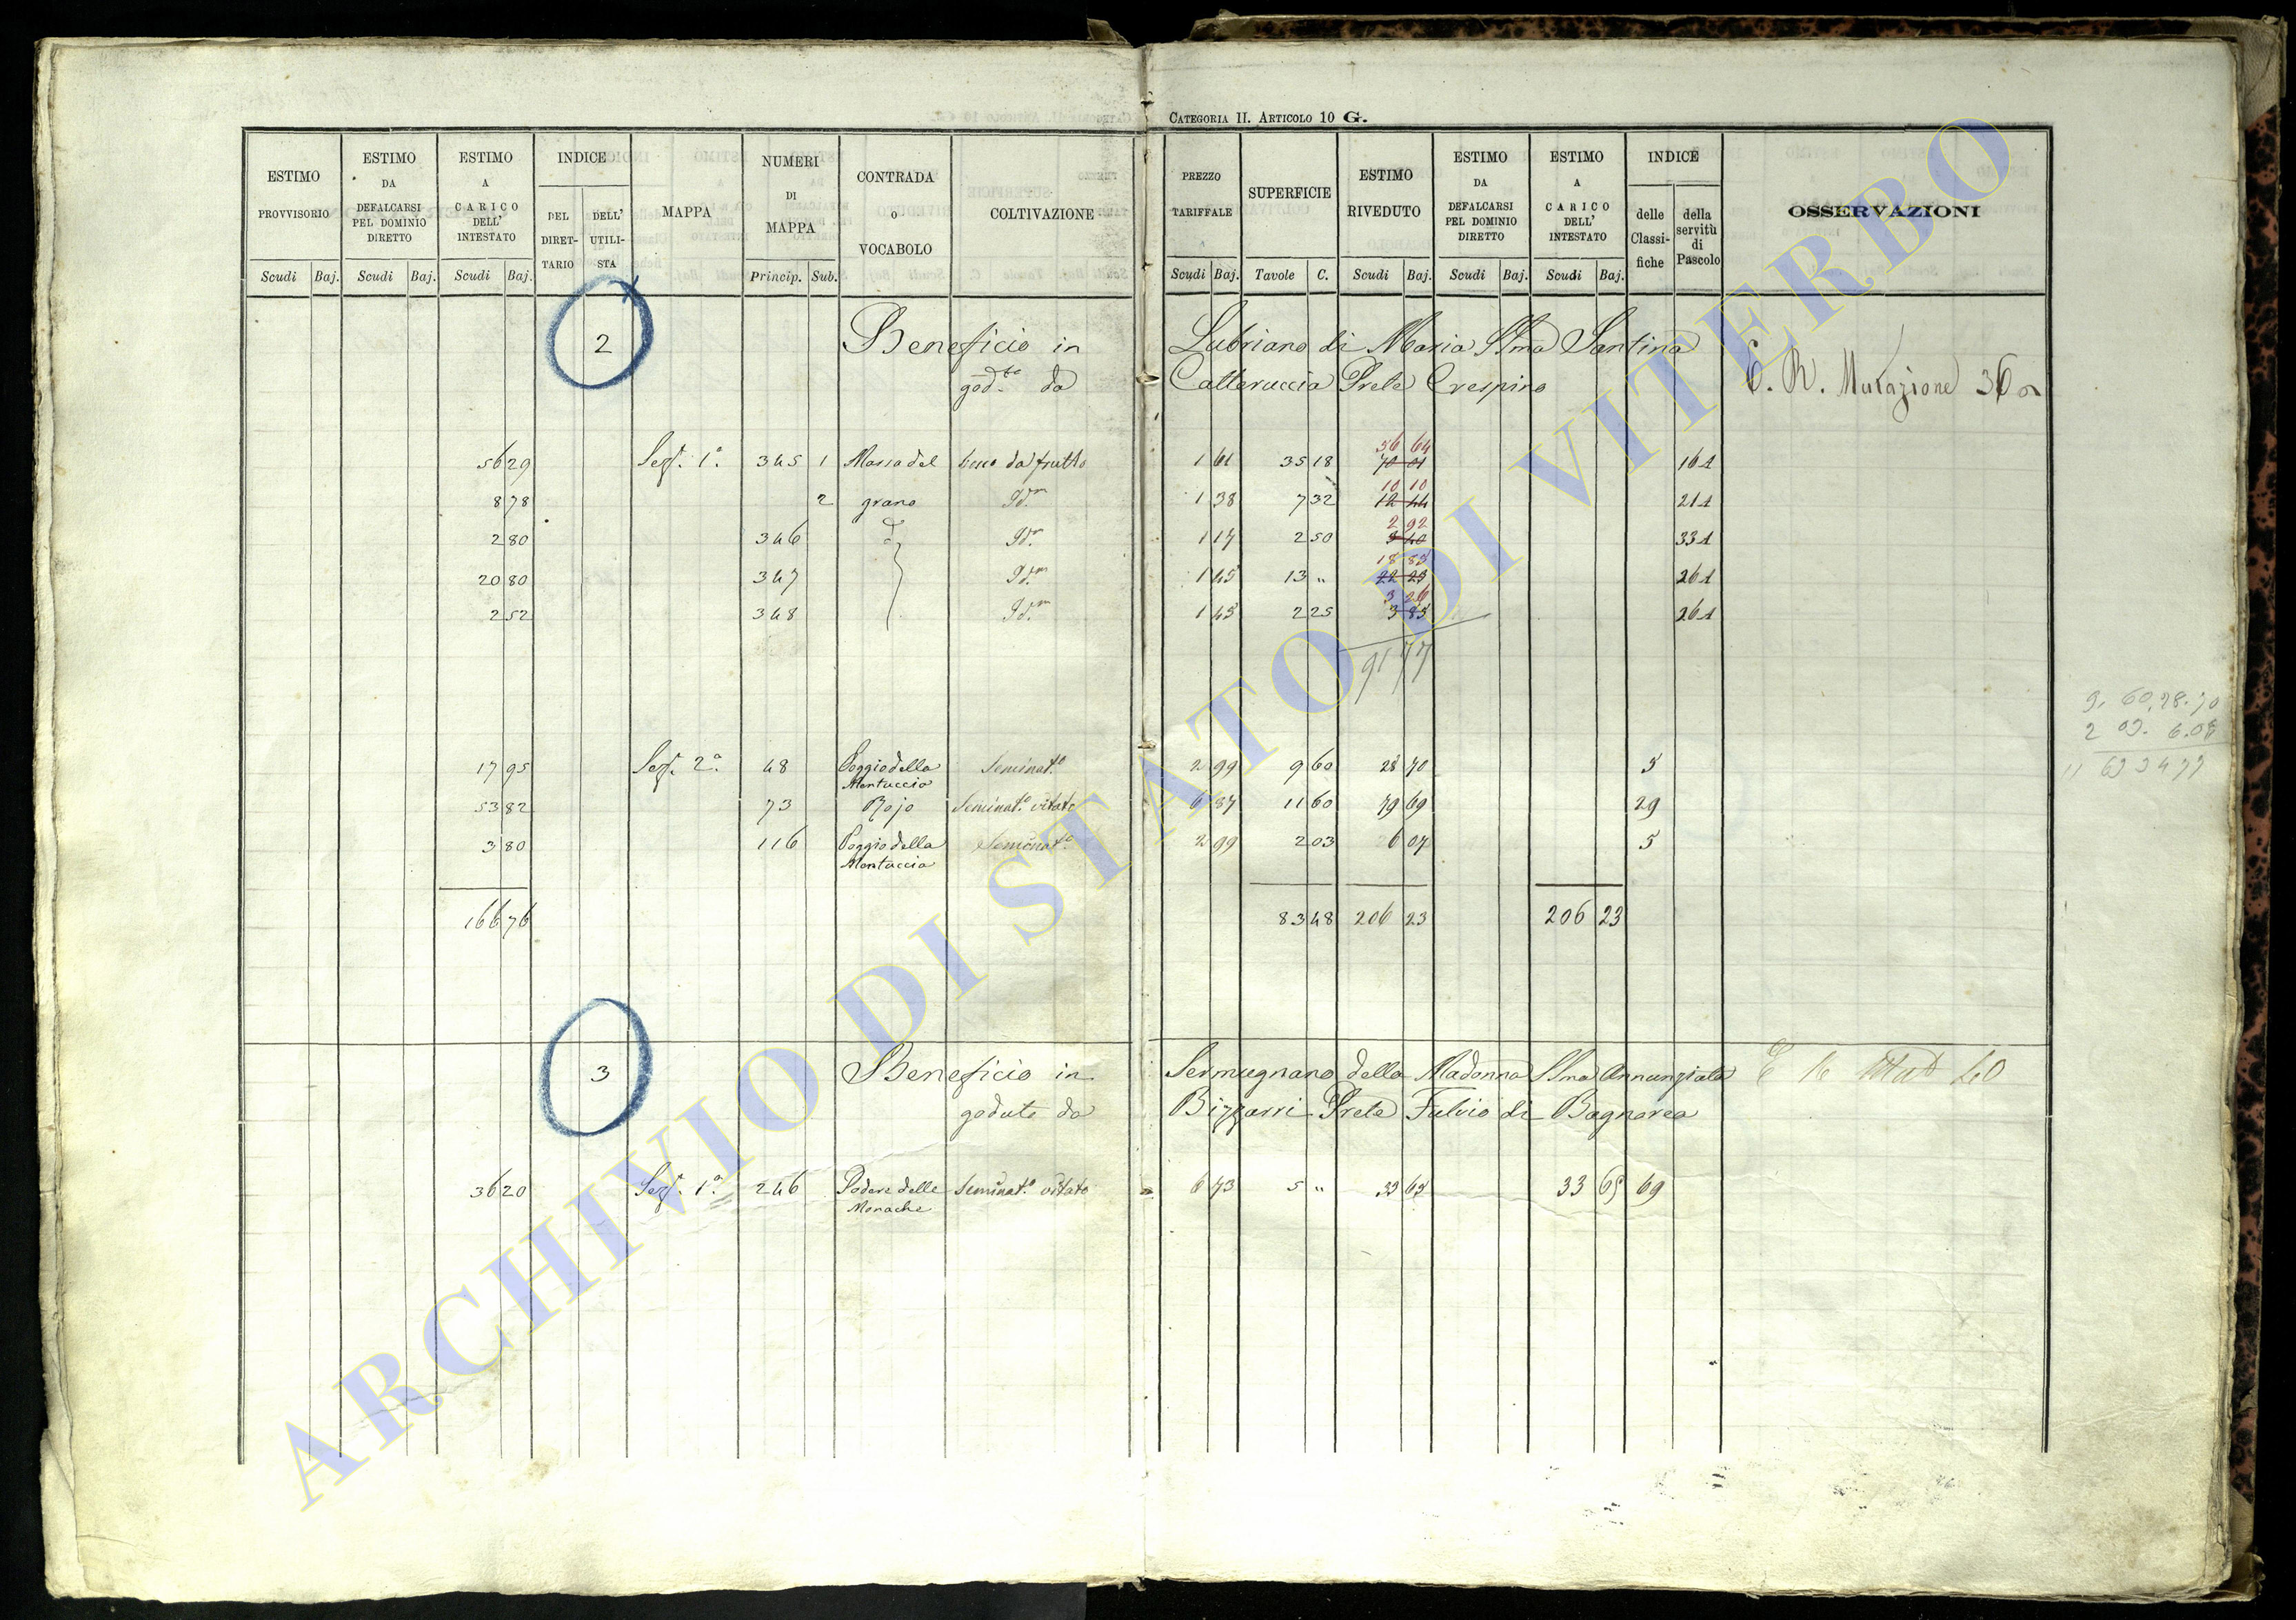 CATEGORIA II. ARTICOLO 10 G.
ESTIMO PROVVISORIO
ESTIMO DA DEFALCARSI PEL DOMINIO DIRETTO
ESTIMO A CARICO DELL' INTESTATO
INDICE
DEL DIRETTARIO
DELL' UTILISTA
MAPPA
NUMERI DI MAPPA
CONTRADA O VOCABOLO
COLTIVAZIONE
PREZZO TARIFFALE
SUPERFICIE
ESTIMO RIVEDUTO
ESTIMO DA DEFALCARSI PEL DOMINIO DIRETTO
ESTIMO A CARICO DELL' INTESTATO
INDICE
delle Classifiche
della servitù di Pascolo
OSSERVAZIONI
Scudi Baj. Scudi Baj. Scudi Baj. Princip. Sub. Scudi Baj. Tavole C. Scudi Baj. Scudi Baj. Scudi Baj.
2 Beneficio in Lubriano di Maria SSma Santina
god.to da Catteruccia Prete Crespino
C. R. Mutazione 36
56 64
56 29 Sez. 1a 345 1 Massa del bosco da frutto 1 61 35 18 70 01 161
10 10
8 78 2 grano Idm 1 38 7 32 12 44 211
2 92
2 80 346 Idm 1 17 2 50 3 40 331
18 85
20 80 347 Idm 1 45 13 " 22 23 261
3 26
2 52 348 Idm 1 45 2 25 3 85 261
91 77
9. 60. 28. 70
2 03. 6.08
17 95 Sez. 2a 48 Poggio della Montuccia Seminat.o 2 99 9 60 28 70 5
53 82 73 Rojo Seminat.o vitato 6 87 11 60 79 69 29
3 80 116 Poggio della Montuccia Seminat.o 2 99 2 03 6 07 5
166 76 83 48 206 23 206 23
3 Beneficio in Sermugnano della Madonna SSma Annunziata
goduto da Bizzarri Prete Fulvio di Bagnorea
36 20 Sez. 1a 246 Podere delle Monache Seminat.o vitato 6 73 5 " 33 65 33 65 69
ARCHIVIO DI STATO DI VITERBO